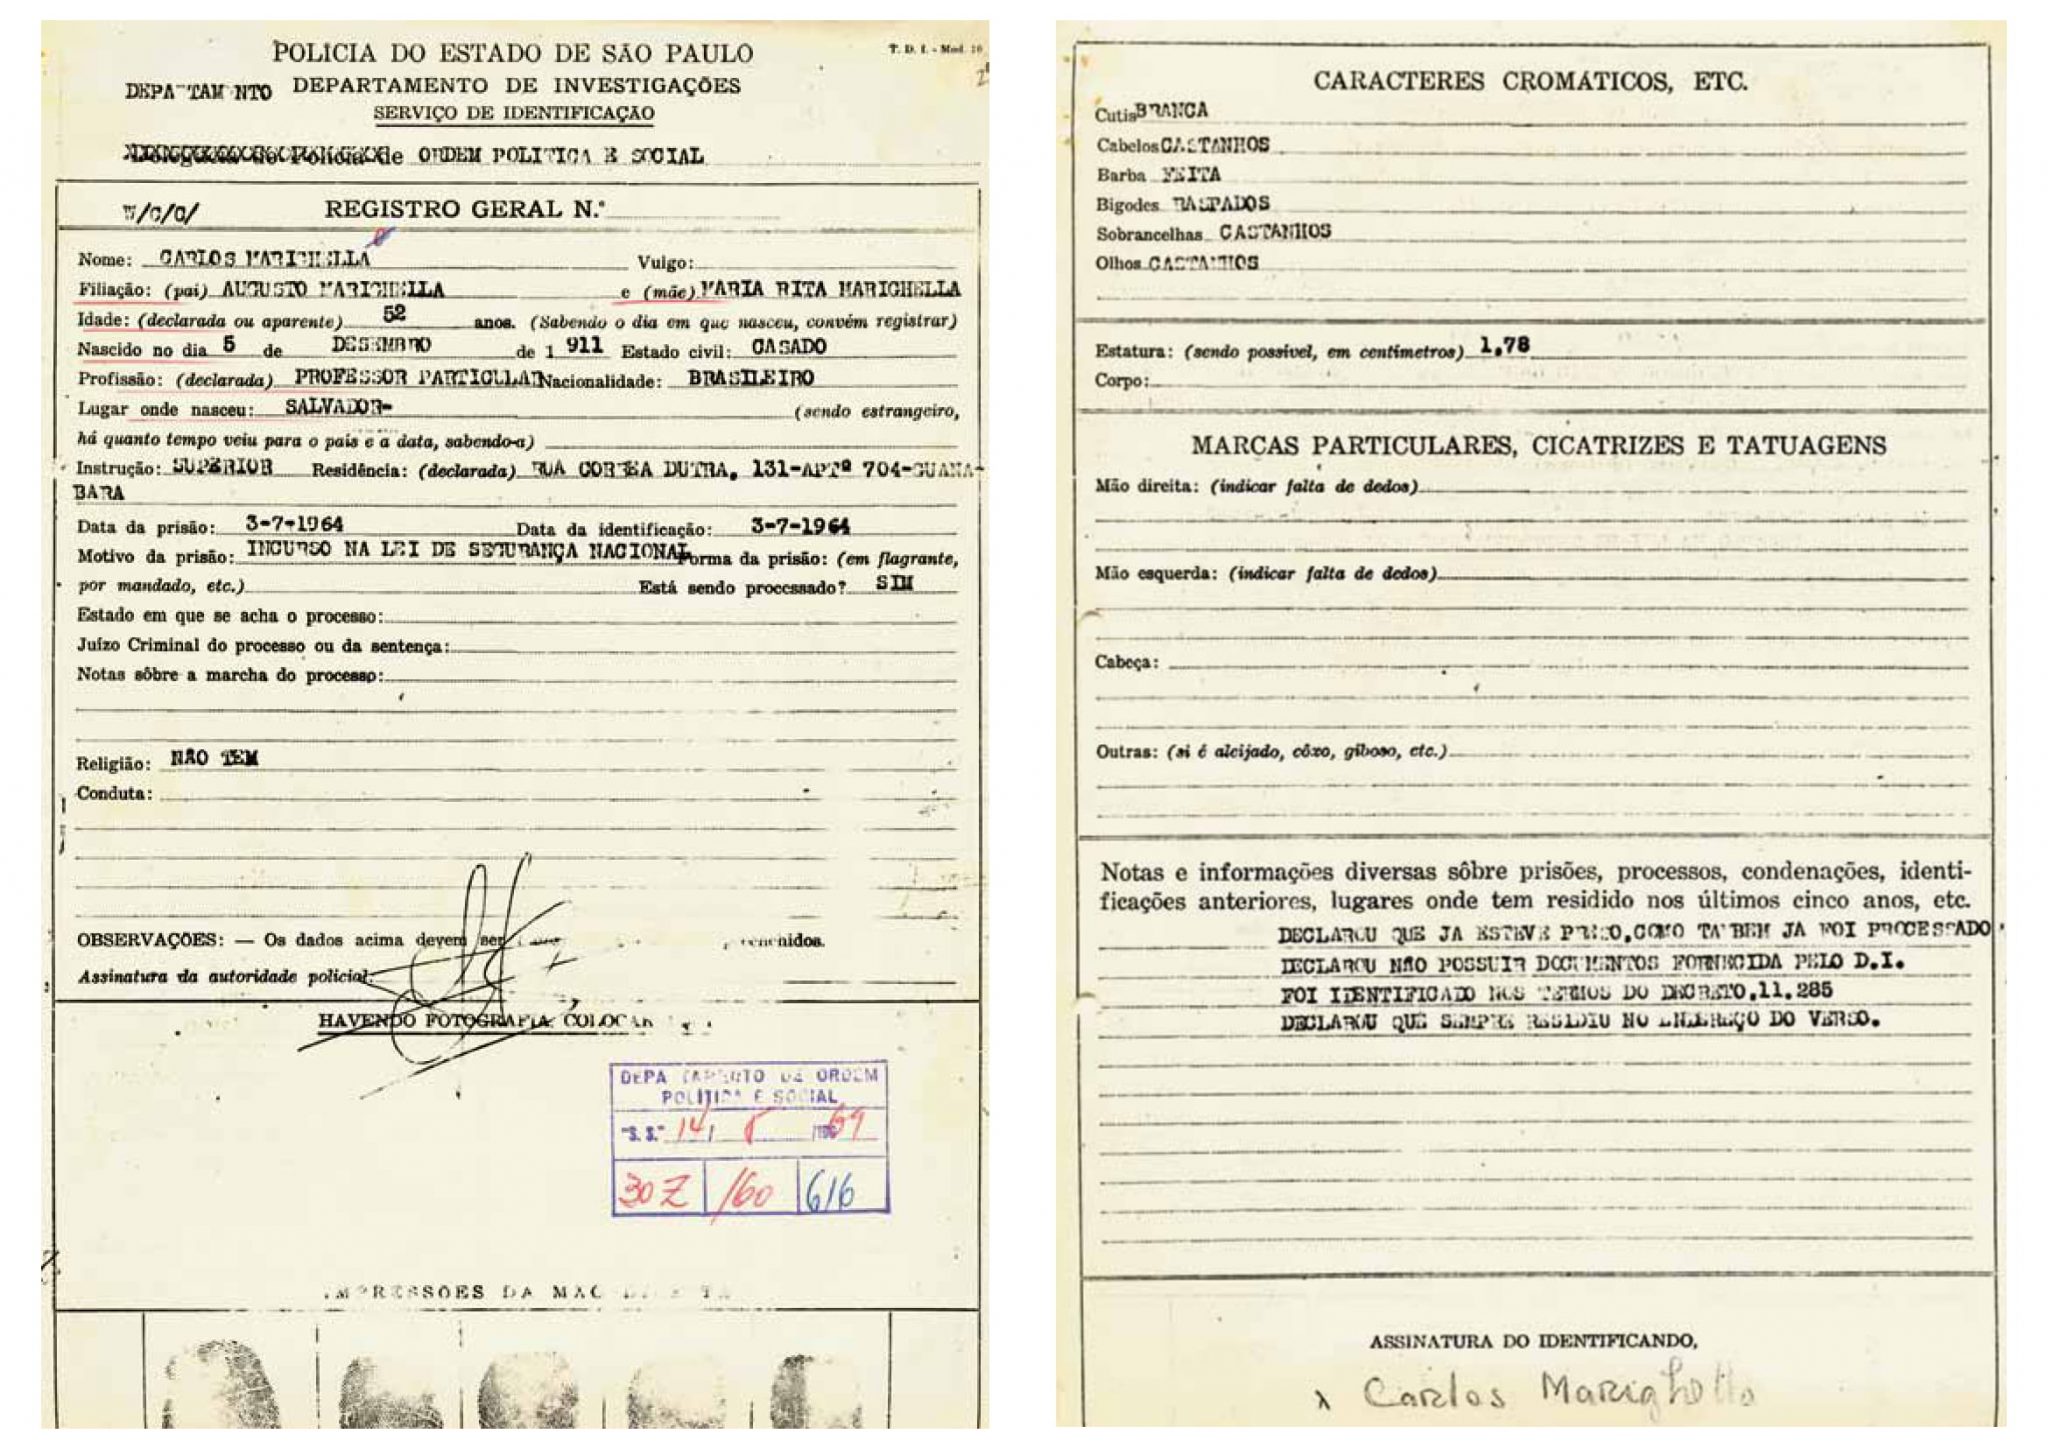 POLÍCIA DO ESTADO DE SÃO PAULO
T. D. I. - Mod. 10
DEPARTAMENTO DE INVESTIGAÇÕES
DEPA TAM NTO
SERVIÇO DE IDENTIFICAÇÃO
de ORDEM POLITICA E SOCIAL
REGISTRO GERAL N.º
Nome: CARLOS MARIGHELLA Vulgo:
Filiação: (pai) AUGUSTO MARIGHELLA e (mãe) MARIA RITA MARIGHELLA
Idade: (declarada ou aparente) 52 anos. (Sabendo o dia em que nasceu, convém registrar)
Nascido no dia 5 de DESEMBRO de 1 911 Estado civil: CASADO
Profissão: (declarada) PROFESSOR PARTICULAR Nacionalidade: BRASILEIRO
Lugar onde nasceu: SALVADOR- (sendo estrangeiro,
há quanto tempo veiu para o país e a data, sabendo-a)
Instrução: SUPERIOR Residência: (declarada) RUA CORREA DUTRA, 131-APTº 704-GUANA-
BARA
Data da prisão: 3-7-1964 Data da identificação: 3-7-1964
Motivo da prisão: INCURSO NA LEI DE SEGURANÇA NACIONAL Forma da prisão: (em flagrante,
por mandado, etc.) Está sendo processado? SIM
Estado em que se acha o processo:
Juízo Criminal do processo ou da sentença:
Notas sôbre a marcha do processo:
Religião: NÃO TEM
Conduta:
OBSERVAÇÕES: — Os dados acima devem ser
Assinatura da autoridade policial:
HAVENDO FOTOGRAFIA, COLOCAR
DEPARTAMENTO DE ORDEM
POLÍTICA E SOCIAL
"S. S." 14/ 8 /1969
30 Z /60 616
IMPRESSÕES DA MÃO
CARACTERES CROMÁTICOS, ETC.
Cutis BRANCA
Cabelos CASTANHOS
Barba FEITA
Bigodes RASPADOS
Sobrancelhas CASTANHOS
Olhos CASTANHOS
Estatura: (sendo possível, em centímetros) 1,78
Corpo:
MARCAS PARTICULARES, CICATRIZES E TATUAGENS
Mão direita: (indicar falta de dedos)
Mão esquerda: (indicar falta de dedos)
Cabeça:
Outras: (si é aleijado, côxo, giboso, etc.)
Notas e informações diversas sôbre prisões, processos, condenações, identi-
ficações anteriores, lugares onde tem residido nos últimos cinco anos, etc.
DECLAROU QUE JA ESTEVE PRESO,COMO TAMBEM JA FOI PROCESSADO.
DECLAROU NÃO POSSUIR DOCUMENTOS FORNECIDA PELO D.I.
FOI IDENTIFICADO NOS TERMOS DO DECRETO,11.285
DECLAROU QUE SEMPRE RESIDIU NO ENDEREÇO DO VERSO.
ASSINATURA DO IDENTIFICANDO,
x Carlos Marighella